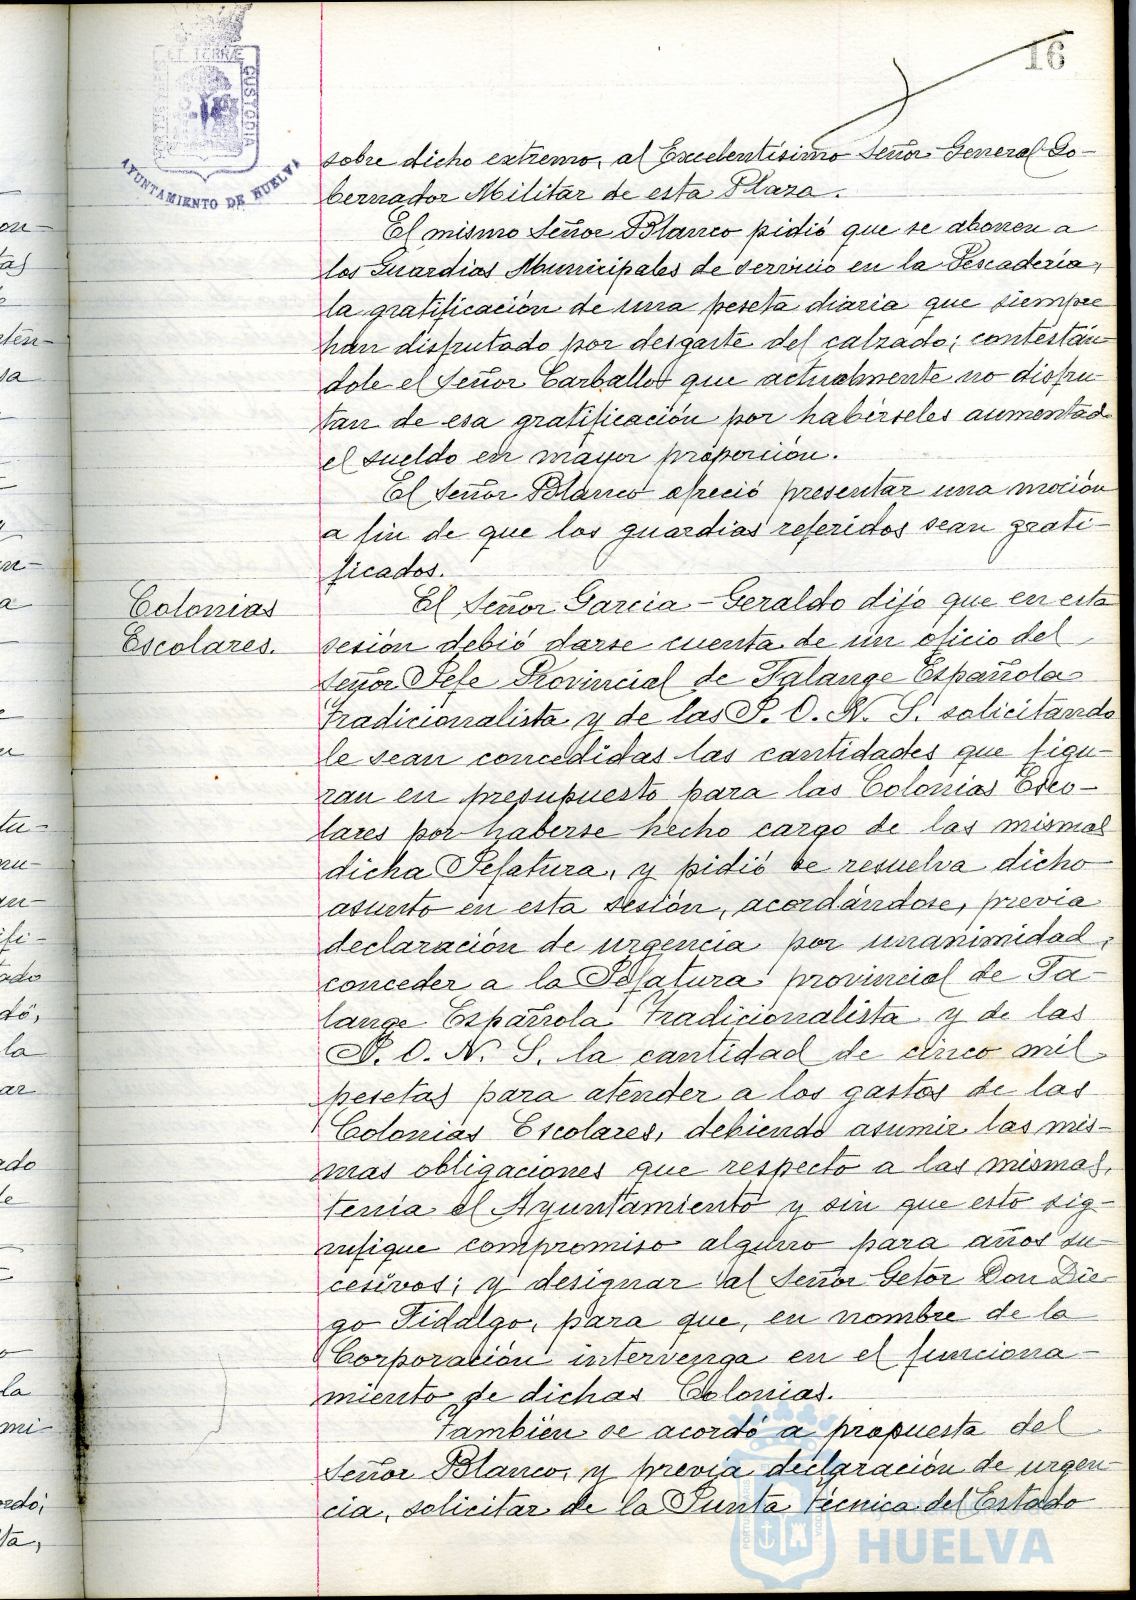 16
AYUNTAMIENTO DE HUELVA
sobre dicho extremo, al Excelentísimo Señor General Go-
bernador Militar de esta Plaza.
El mismo Señor Blanco pidió que se abonen a
los Guardias Municipales de servicio en la Pescadería,
la gratificación de una peseta diaria que siempre
han disfrutado por desgaste del calzado; contestán-
dole el Señor Carballo que actualmente no disfru-
tan de esa gratificación por habérseles aumentado
el sueldo en mayor proporción.
El Señor Blanco ofreció presentar una moción
a fin de que los guardias referidos sean grati-
ficados.
Colonias
Escolares.
El Señor Garcia-Geraldo dijo que en esta
sesión debió darse cuenta de un oficio del
Señor Jefe Provincial de Falange Española
Tradicionalista y de las J. O. N. S. solicitando
le sean concedidas las cantidades que figu-
ran en presupuesto para las Colonias Esco-
lares por haberse hecho cargo de las mismas
dicha Jefatura, y pidió se resuelva dicho
asunto en esta sesión, acordándose, previa
declaración de urgencia por unanimidad,
conceder a la Jefatura provincial de Fa-
lange Española Tradicionalista y de las
J. O. N. S. la cantidad de cinco mil
pesetas para atender a los gastos de las
Colonias Escolares, debiendo asumir las mis-
mas obligaciones que respecto a las mismas,
tenia el Ayuntamiento y sin que esto sig-
nifique compromiso alguno para años su-
cesivos; y designar al Señor Gestor Don Die-
go Fidalgo, para que, en nombre de la
Corporación intervenga en el funciona-
miento de dichas Colonias.
También se acordó a propuesta del
Señor Blanco, y previa declaración de urgen-
cia, solicitar de la Junta Técnica del Estado
HUELVA